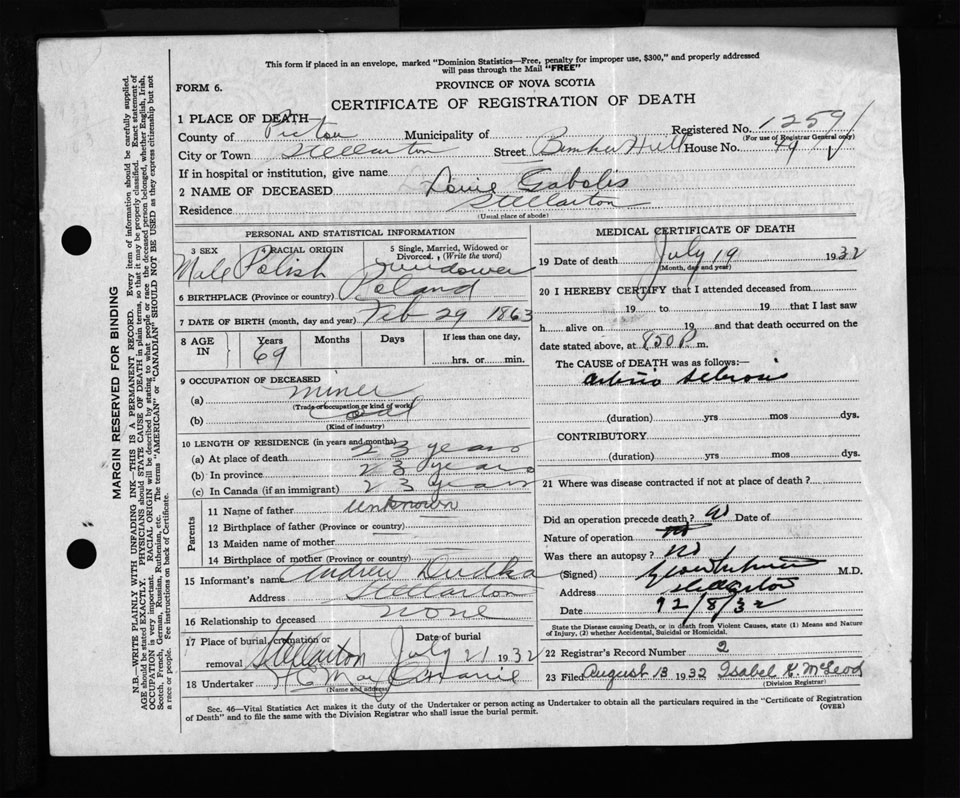 This form if placed in an envelope, marked "Dominion Statistics—Free, penalty for improper use, $300," and properly addressed
will pass through the Mail "FREE"
FORM 6.
PROVINCE OF NOVA SCOTIA
CERTIFICATE OF REGISTRATION OF DEATH
1 PLACE OF DEATH
Registered No. 1259
(For use of Registrar General only)
County of Pictou Municipality of
City or Town Stellarton Street House No. 49
If in hospital or institution, give name
2 NAME OF DECEASED Louie Gabolis
Residence Stellarton
(Usual place of abode)
PERSONAL AND STATISTICAL INFORMATION
3 SEX Male
RACIAL ORIGIN Polish
5 Single, Married, Widowed or Divorced., (Write the word)
6 BIRTHPLACE (Province or country) Poland
7 DATE OF BIRTH (month, day and year) Feb 29 1863
8 AGE IN Years 69 Months Days If less than one day, hrs. or min.
9 OCCUPATION OF DECEASED
(a) miner
(Trade or occupation or kind of work)
(b) Coal
(Kind of industry)
10 LENGTH OF RESIDENCE (in years and months)
(a) At place of death 23 years
(b) In province 23 years
(c) In Canada (if an immigrant) 23 years
Parents
11 Name of father unknown
12 Birthplace of father (Province or country)
13 Maiden name of mother
14 Birthplace of mother (Province or country)
15 Informant's name Andrew Dudka
Address Stellarton
16 Relationship to deceased none
17 Place of burial, cremation or removal Stellarton
Date of burial July 21 1932
18 Undertaker
(Name and address)
MEDICAL CERTIFICATE OF DEATH
19 Date of death July 19 1932
(Month, day and year)
20 I HEREBY CERTIFY that I attended deceased from
19 to 19 that I last saw
h alive on 19 and that death occurred on the
date stated above, at 850 P. m.
The CAUSE OF DEATH was as follows:—
(duration) yrs mos dys.
CONTRIBUTORY
(duration) yrs mos dys.
21 Where was disease contracted if not at place of death?
Did an operation precede death? no Date of
Nature of operation
Was there an autopsy? no
(Signed) M.D.
Address Stellarton
Date 12/8/32
State the Disease causing Death, or in death from Violent Causes, state (1) Means and Nature
of Injury, (2) whether Accidental, Suicidal or Homicidal.
22 Registrar's Record Number 2
23 Filed August 13 1932 Isabel K. McLeod
(Division Registrar)
Sec. 46—Vital Statistics Act makes it the duty of the Undertaker or person acting as Undertaker to obtain all the particulars required in the "Certificate of Registration
of Death" and to file the same with the Division Registrar who shall issue the burial permit.
(OVER)
MARGIN RESERVED FOR BINDING
N.B.—WRITE PLAINLY WITH UNFADING INK—THIS IS A PERMANENT RECORD. Every item of information should be carefully supplied.
AGE should be stated EXACTLY. PHYSICIANS should STATE CAUSE OF DEATH in plain terms, so that it may be properly classified. Exact statement of
OCCUPATION is very important. RACIAL ORIGIN will be described by stating to what people or race the deceased person belonged, whether English, Irish,
Scotch, French, German, Russian, Ruthenian, etc. The terms "AMERICAN" or "CANADIAN" SHOULD NOT BE USED as they express citizenship but not
a race or people. Fee instructions on back of Certificate.